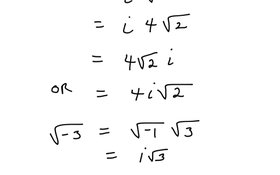 = i 4 √2
= 4√2 i
OR = 4i√2
√-3 = √-1 √3
= i√3